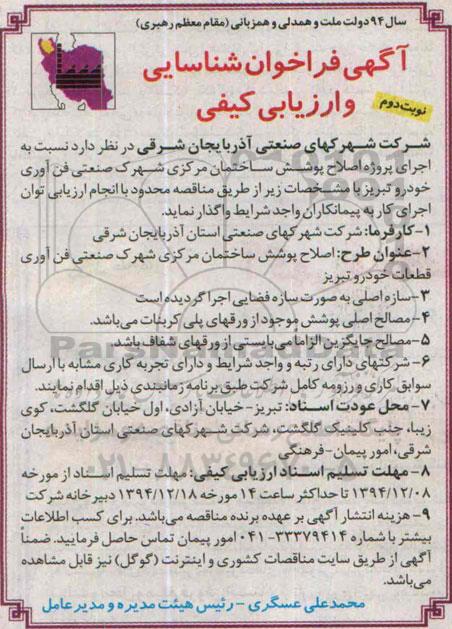 سال ۹۴ دولت ملت و همدلی و همزبانی (مقام معظم رهبری)
آگهی فراخوان شناسایی
و ارزیابی کیفی
نوبت دوم
شرکت شهرکهای صنعتی آذربایجان شرقی در نظر دارد نسبت به
اجرای پروژه اصلاح پوشش ساختمان مرکزی شهرک صنعتی فن آوری
خودرو تبریز با مشخصات زیر از طریق مناقصه محدود با انجام ارزیابی توان
اجرای کار به پیمانکاران واجد شرایط واگذار نماید.
۱- کارفرما: شرکت شهرکهای صنعتی استان آذربایجان شرقی
۲- عنوان طرح: اصلاح پوشش ساختمان مرکزی شهرک صنعتی فن آوری
قطعات خودرو تبریز
۳- سازه اصلی به صورت سازه فضایی اجرا گردیده است
۴- مصالح اصلی پوشش موجود از ورقهای پلی کربنات می‌باشد.
۵- مصالح جایگزین الزاما می‌بایستی از ورقهای شفاف باشد
۶- شرکتهای دارای رتبه و واجد شرایط و دارای تجربه کاری مشابه با ارسال
سوابق کاری و رزومه کامل شرکت طبق برنامه زمانبندی ذیل اقدام نمایند.
۷- محل عودت اسناد: تبریز- خیابان آزادی، اول خیابان گلگشت، کوی
زیبا، جنب کلینیک گلگشت، شرکت شهرکهای صنعتی استان آذربایجان
شرقی، امور پیمان- فرهنگی
۸- مهلت تسلیم اسناد ارزیابی کیفی: مهلت تسلیم اسناد از مورخه
۱۳۹۴/۱۲/۰۸ تا حداکثر ساعت ۱۴ مورخه ۱۳۹۴/۱۲/۱۸ دبیرخانه شرکت
۹- هزینه انتشار آگهی بر عهده برنده مناقصه می‌باشد. برای کسب اطلاعات
بیشتر با شماره ۳۳۳۷۹۴۱۴-۰۴۱ امور پیمان تماس حاصل فرمایید. ضمناً
آگهی از طریق سایت مناقصات کشوری و اینترنت (گوگل) نیز قابل مشاهده
می‌باشد.
محمدعلی عسگری - رئیس هیئت مدیره و مدیر عامل